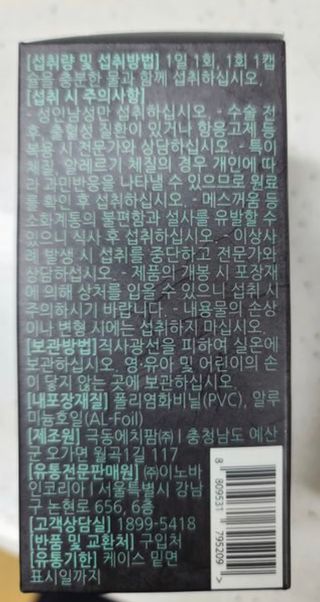 [섭취량 및 섭취방법] 1일 1회, 1회 1캡
슐을 충분한 물과 함께 섭취하십시오.
[섭취 시 주의사항]
- 성인남성만 섭취하십시오. - 수술 전
후, 출혈성 질환이 있거나 항응고제 등
복용 시 전문가와 상담하십시오. - 특이
체질, 알레르기 체질의 경우 개인에 따
라 과민반응을 나타낼 수 있으므로 원료
를 확인 후 섭취하십시오. - 메스꺼움 등
소화계통의 불편함과 설사를 유발할 수
있으니 식사 후 섭취하십시오. - 이상사
례 발생 시 섭취를 중단하고 전문가와
상담하십시오. - 제품의 개봉 시 포장재
에 의해 상처를 입을 수 있으니 섭취 시
주의하시기 바랍니다. - 내용물의 손상
이나 변형 시에는 섭취하지 마십시오.
[보관방법] 직사광선을 피하여 실온에
보관하십시오. 영·유아 및 어린이의 손
이 닿지 않는 곳에 보관하십시오.
[내포장재질] 폴리염화비닐(PVC), 알루
미늄호일(AL-Foil)
[제조원] 극동에치팜㈜ | 충청남도 예산
군 오가면 월곡1길 117
[유통전문판매원] ㈜이노바
인코리아 | 서울특별시 강남
구 논현로 656, 6층
[고객상담실] 1899-5418
[반품 및 교환처] 구입처
[유통기한] 케이스 밑면
표시일까지
8 809531 795209 >